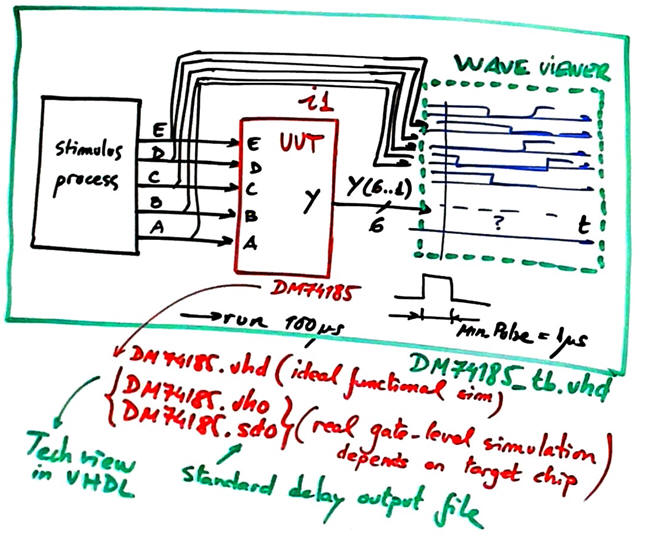 WAVE VIEWER
i1
stimulus
process
E
D
C
B
A
E
D
C
B
A
UUT
Y
Y(6..1)
6
?
t
DM74185
run 100 µs
Min Pulse = 1µs
DM74185_tb.vhd
DM74185.vhd (ideal functional sim)
DM74185.vho
DM74185.sdo
(real gate-level simulation
depends on target chip)
Tech view
in VHDL
Standard delay output file